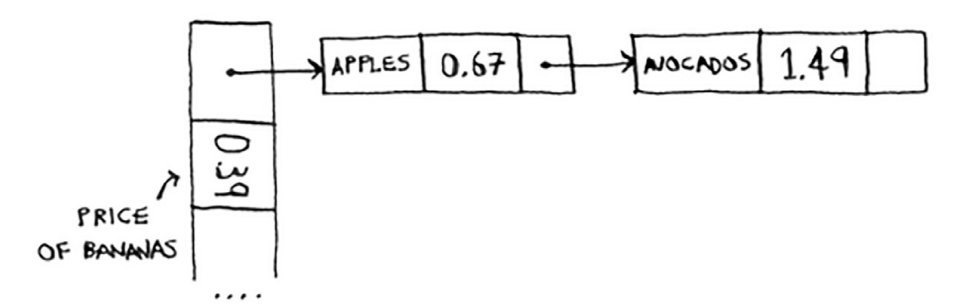 APPLES 0.67
AVOCADOS 1.49
0.39
PRICE
OF BANANAS
....